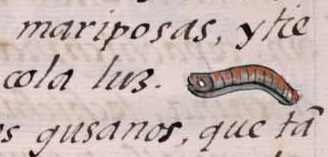 mariposas, y tie
cola luz.
s gusanos, que tã